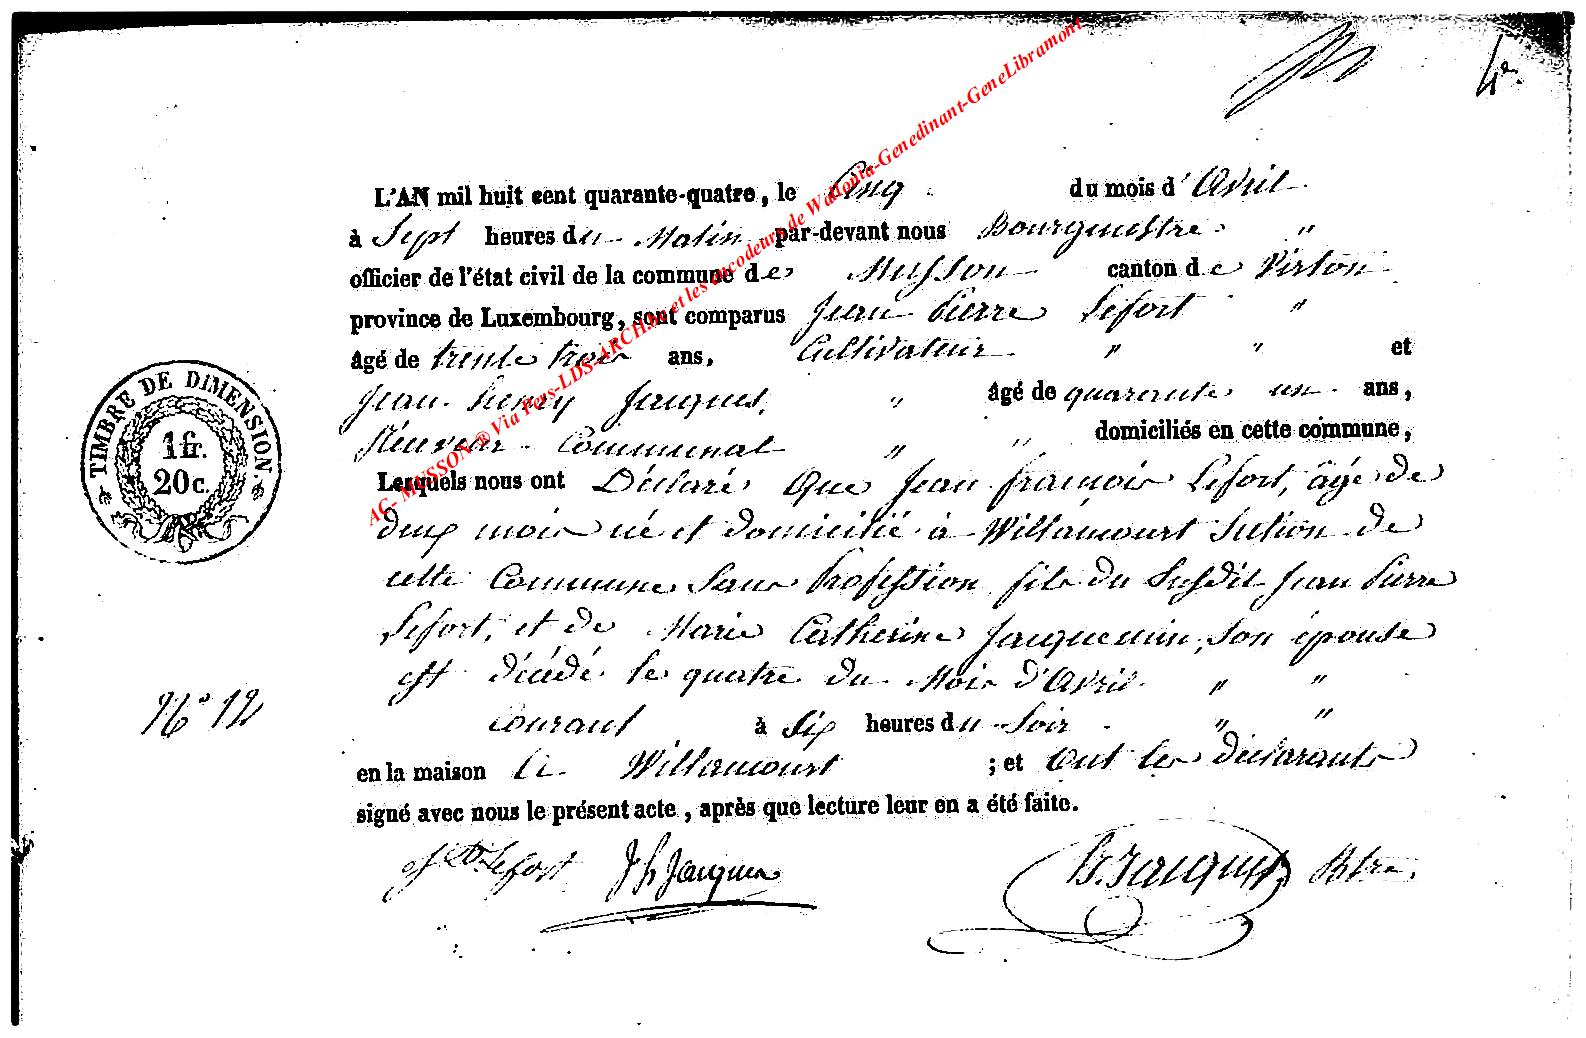 4e.
L'AN mil huit cent quarante-quatre, le Cinq du mois d'Avril
à Sept heures du Matin par-devant nous Bourgmestre "
officier de l'état civil de la commune de Musson canton de Virton
province de Luxembourg, sont comparus Jean Pierre Lefort "
âgé de trente trois ans, Cultivateur " " et
Jean Henry Jacques, " âgé de quarante un ans,
Receveur Communal " " domiciliés en cette commune,
Lesquels nous ont Déclaré Que Jean françois Lefort, âgé de
deux mois né et domicilié à Willancourt Section de
cette Commune Sans Profession fils du Susdit Jean Pierre
Lefort, et de Marie Catherine Jacquemin, Son épouse
est décédé le quatre du Mois d'Avril " "
Courant à Six heures du Soir " "
en la maison à Willancourt ; et Ont les déclarants
signé avec nous le présent acte, après que lecture leur en a été faite.
Lefort JH Jacques Jacques Btre
N° 12
TIMBRE DE DIMENSION.
1 fr.
20 c.
AC- MUSSON ® Via Fers-LDS-ARCH.be et les encodeurs de Wallonia-Genedinant-GeneLibramont